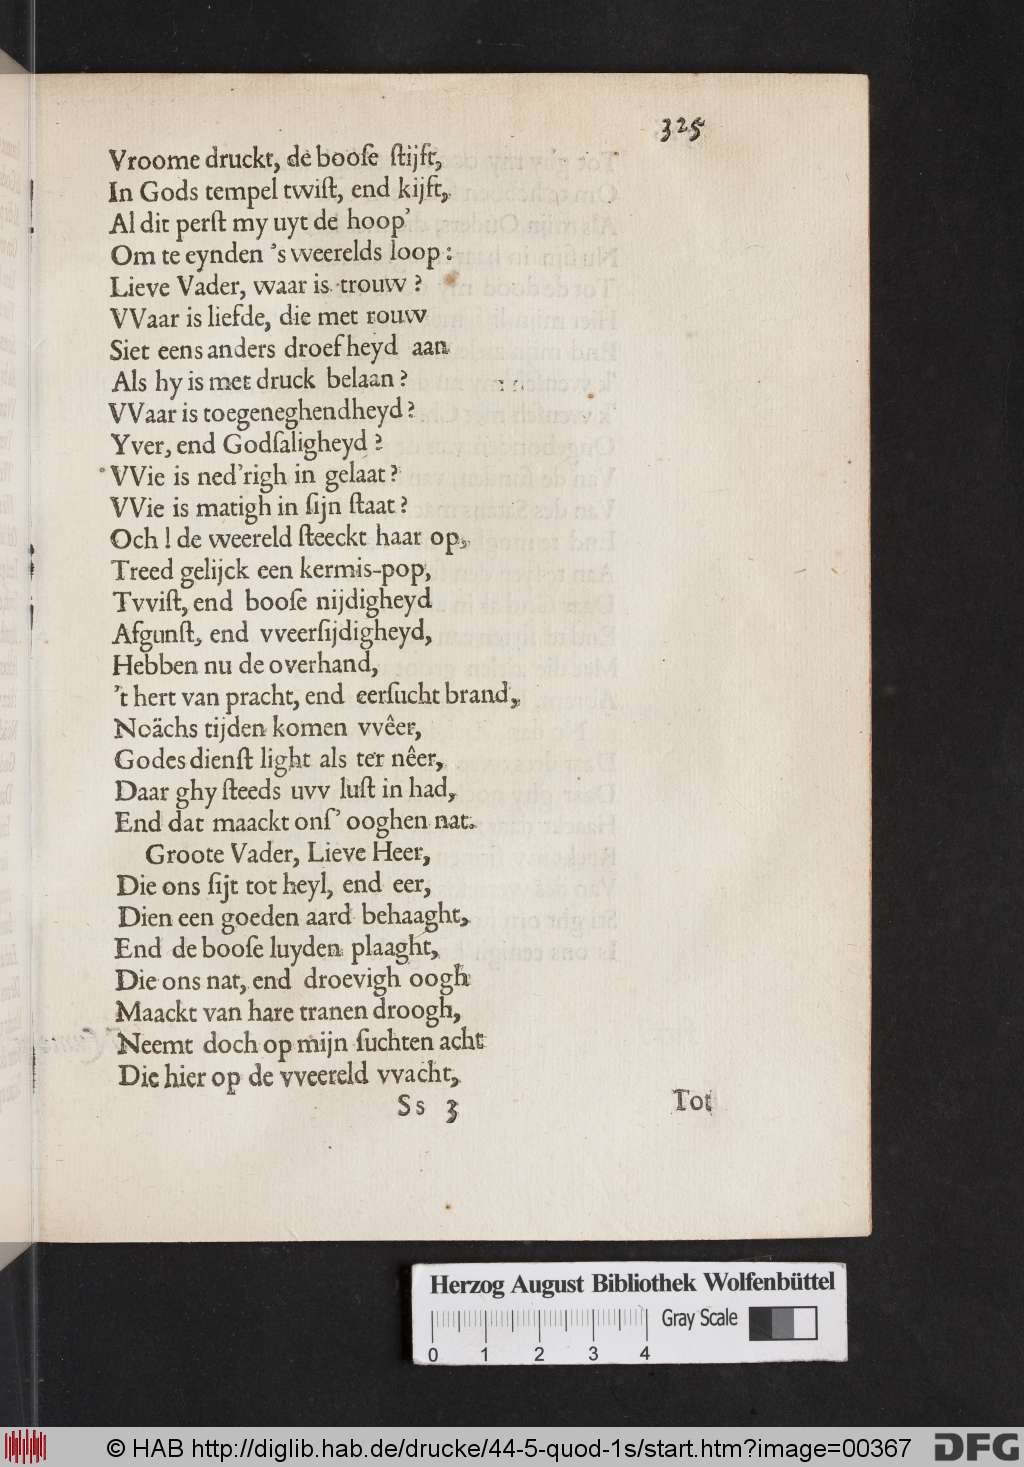 325
Vroome druckt, de booſe ſtijft,
In Gods tempel twiſt, end kijft,
Al dit perſt my uyt de hoop'
Om te eynden 's weerelds loop:
Lieve Vader, waar is trouw?
VVaar is liefde, die met rouw
Siet eens anders droefheyd aan
Als hy is met druck belaan?
VVaar is toegeneghendheyd?
Yver, end Godſaligheyd?
VVie is ned'righ in gelaat?
VVie is matigh in ſijn ſtaat?
Och! de weereld ſteeckt haar op,
Treed gelijck een kermis-pop,
Tvviſt, end booſe nijdigheyd
Afgunſt, end vveerſijdigheyd,
Hebben nu de overhand,
't hert van pracht, end eerſucht brand,
Noächs tijden komen vvêer,
Godes dienſt light als ter nêer,
Daar ghy ſteeds uvv luſt in had,
End dat maackt onſ' ooghen nat.
Groote Vader, Lieve Heer,
Die ons ſijt tot heyl, end eer,
Dien een goeden aard behaaght,
End de booſe luyden plaaght,
Die ons nat, end droevigh oogh
Maackt van hare tranen droogh,
Neemt doch op mijn ſuchten acht
Die hier op de vveereld vvacht,
Ss 3 Tot
Herzog August Bibliothek Wolfenbüttel
Gray Scale
0 1 2 3 4
© HAB http://diglib.hab.de/drucke/44-5-quod-1s/start.htm?image=00367 DFG